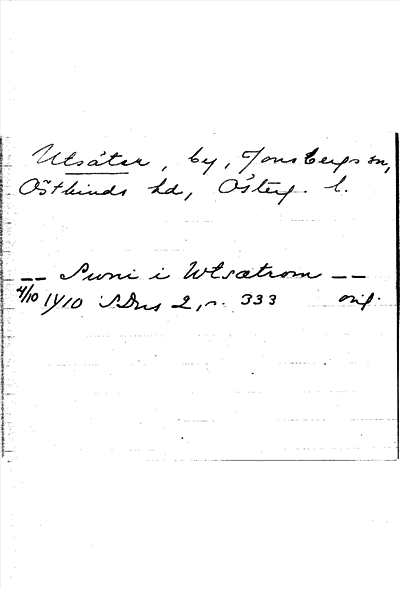 Utsätter, by, Jonsbergs sn,
Östkinds hd, Österg. l.
-- Suni i Wtsætrom --
4/10 1410 SDns 2, n. 333 orig.